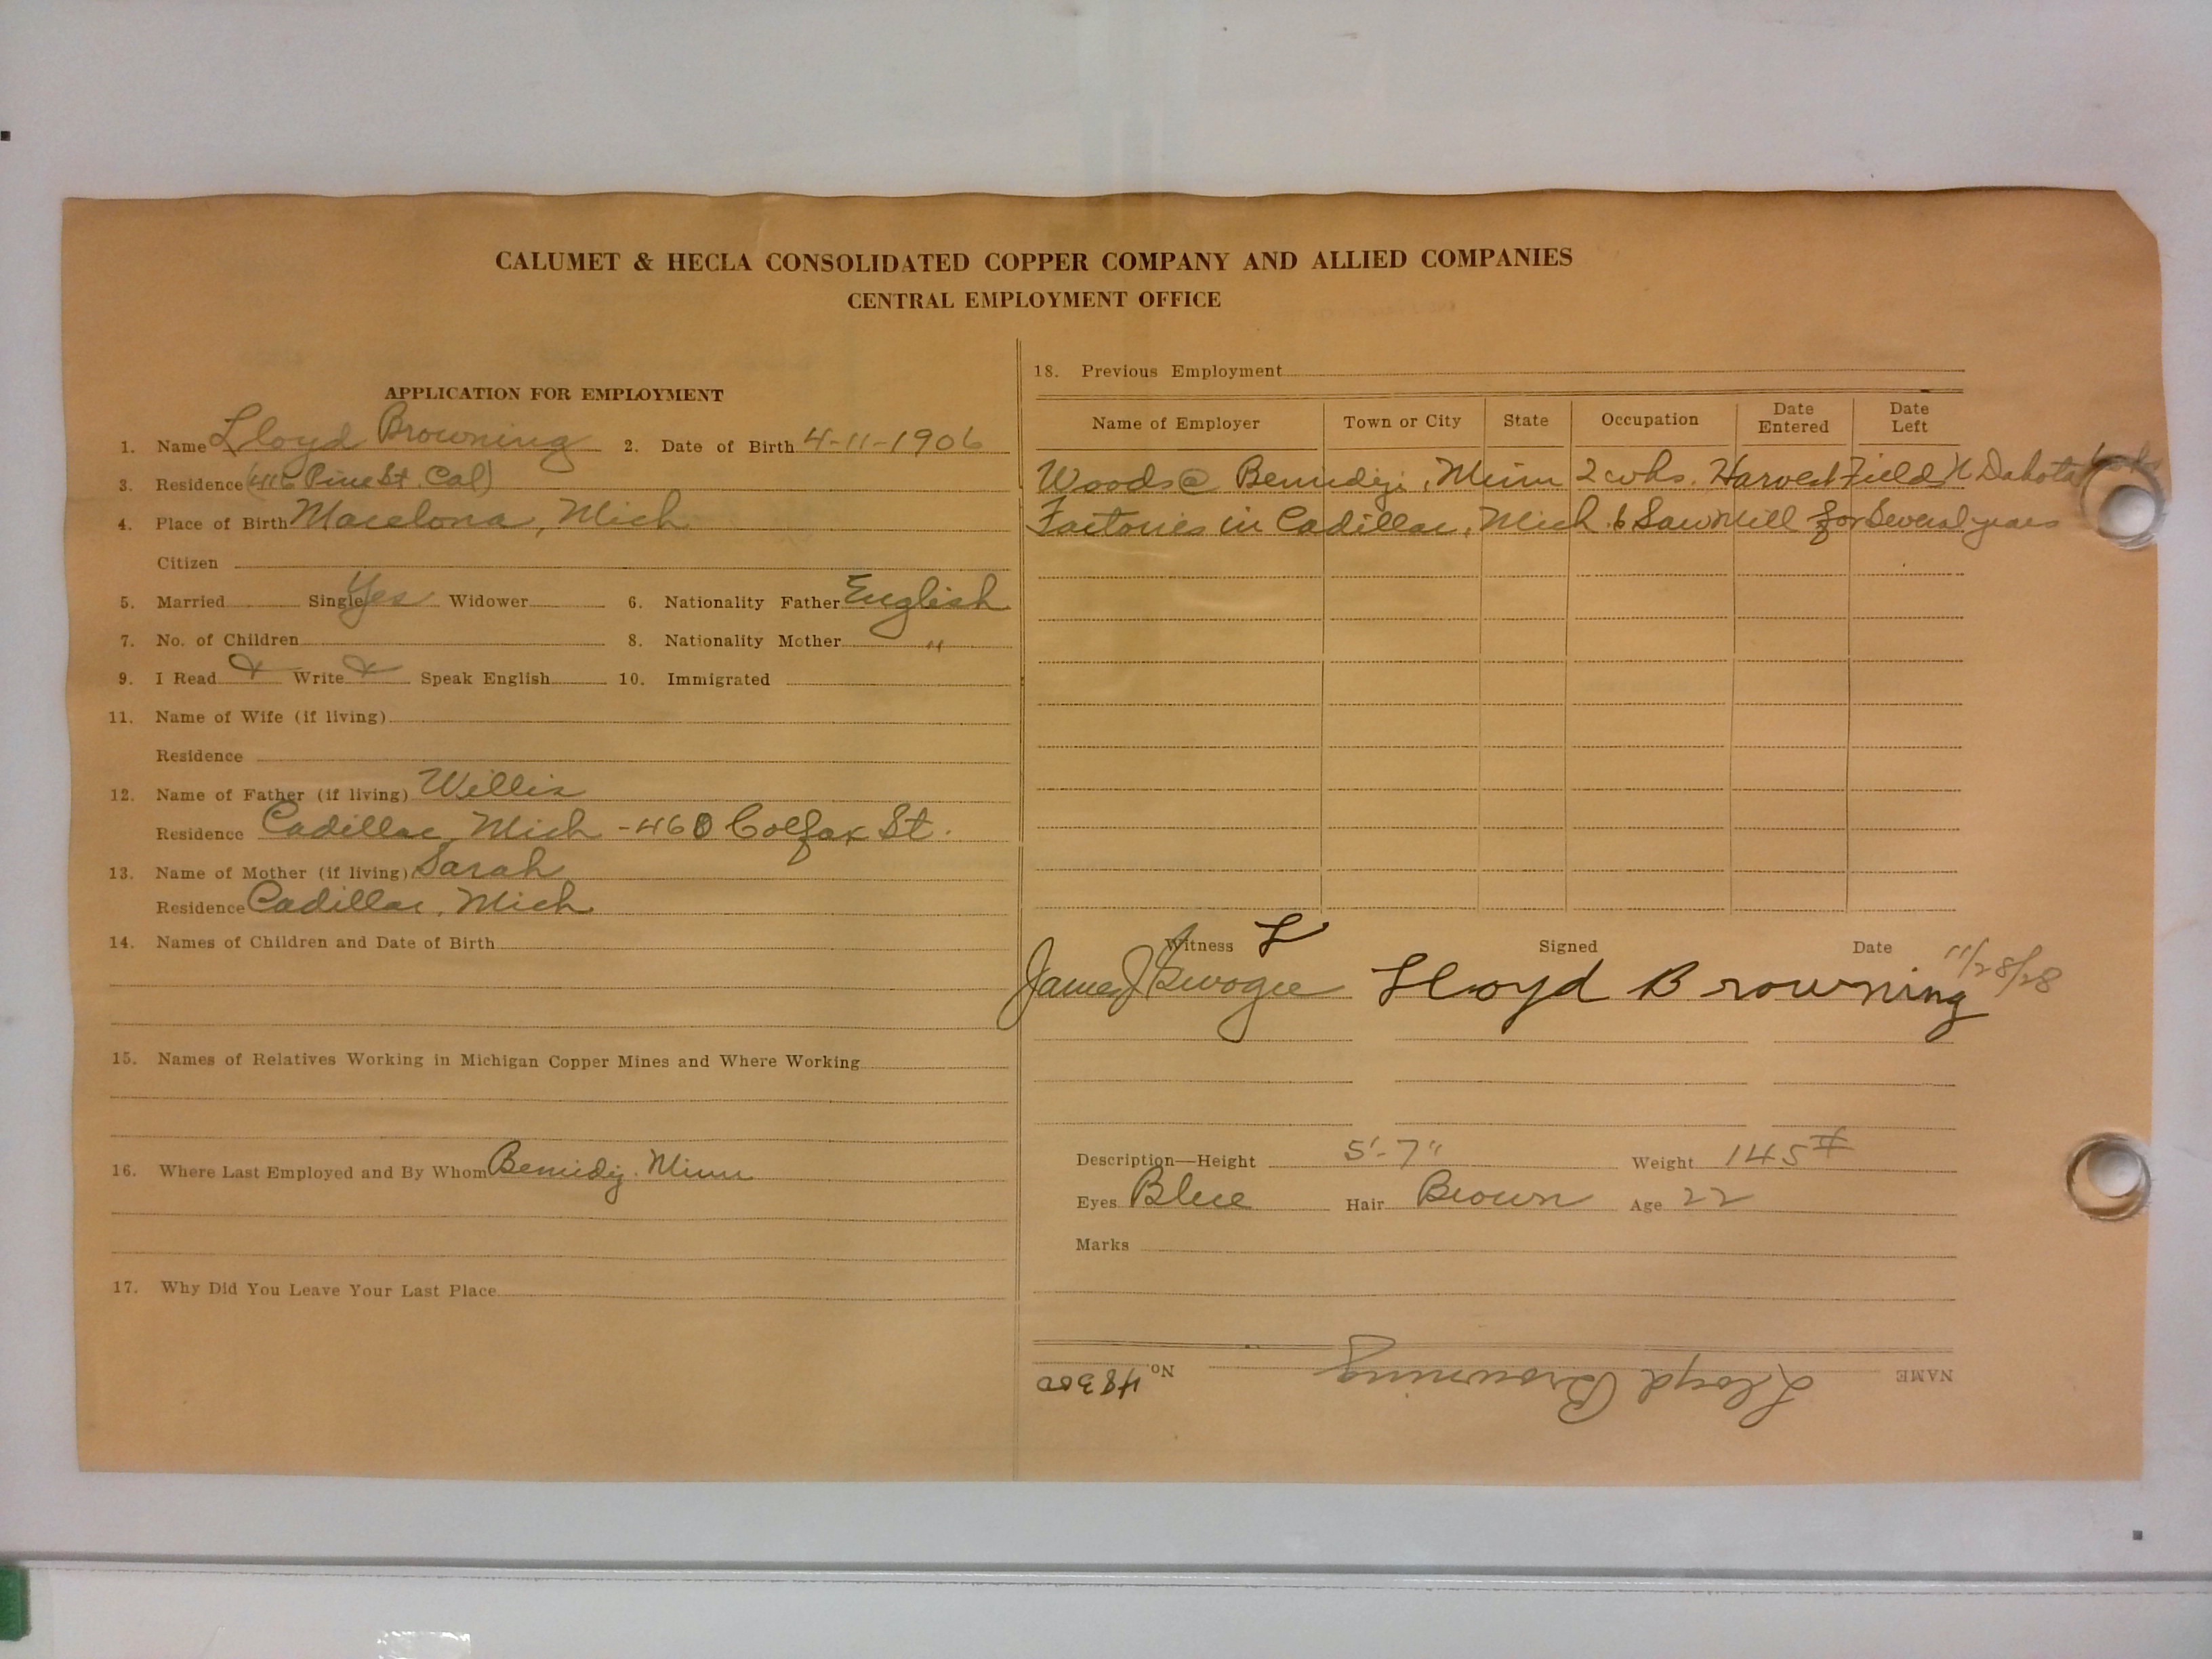 CALUMET & HECLA CONSOLIDATED COPPER COMPANY AND ALLIED COMPANIES
CENTRAL EMPLOYMENT OFFICE
APPLICATION FOR EMPLOYMENT
1. Name Lloyd Browning 2. Date of Birth 4-11-1906
3. Residence (416 Pine St. Cal)
4. Place of Birth Macelona, Mich
Citizen
5. Married Single Yes Widower 6. Nationality Father English
7. No. of Children 8. Nationality Mother "
9. I Read Write Speak English 10. Immigrated
11. Name of Wife (if living)
Residence
12. Name of Father (if living) Willis
Residence Cadillac, Mich - 460 Colfax St.
13. Name of Mother (if living) Sarah
Residence Cadillac, Mich
14. Names of Children and Date of Birth
15. Names of Relatives Working in Michigan Copper Mines and Where Working
16. Where Last Employed and By Whom Bemidji. Minn
17. Why Did You Leave Your Last Place
18. Previous Employment
Name of Employer Town or City State Occupation Date Entered Date Left
Woods @ Bemidiji, Minn 2 wks. Harvest Field N Dakota
Factories in Cadillac, Mich & Saw Mill for Several years
Witness L Signed Date 11/28/28
James J Lloyd Browning
Description—Height 5'-7" Weight 145#
Eyes Blue Hair Brown Age 22
Marks
NAME Lloyd Browning No. 48300